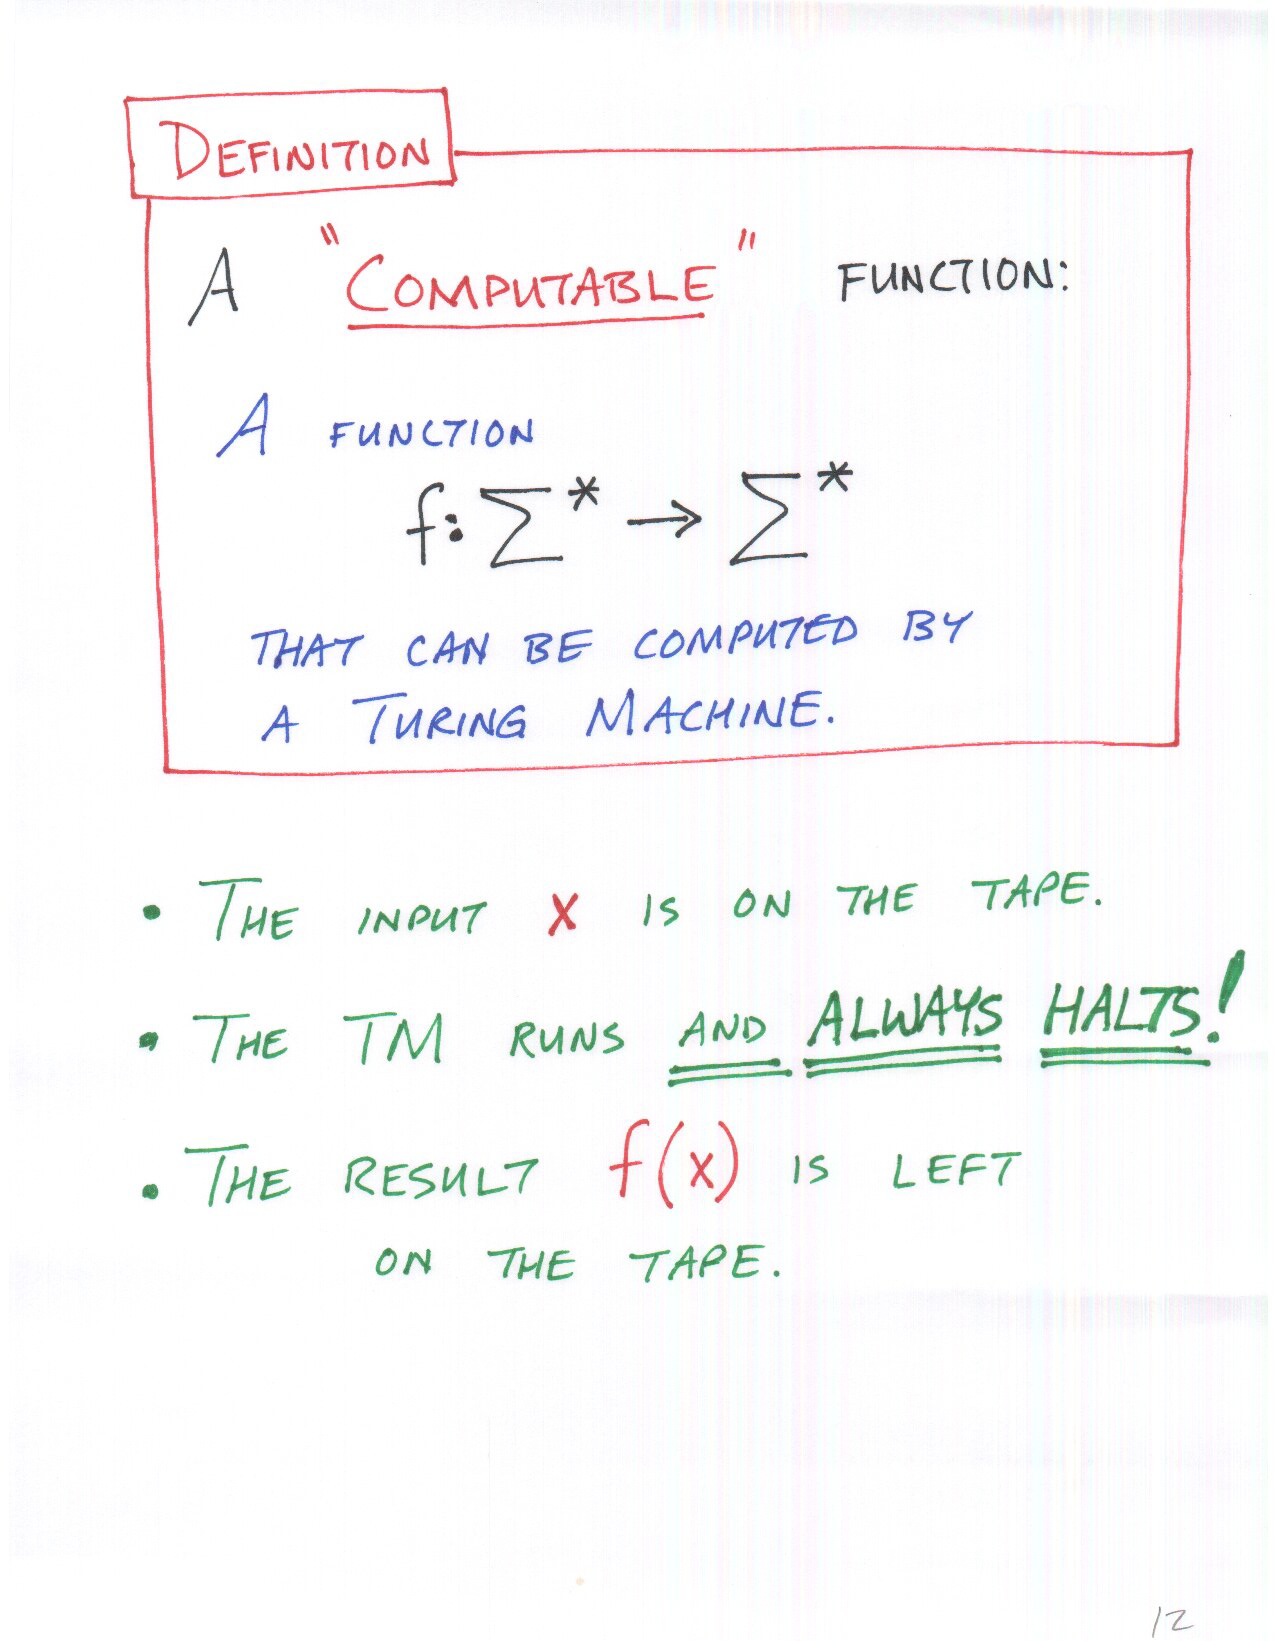 DEFINITION
A "COMPUTABLE" FUNCTION:
A FUNCTION
f: Σ* → Σ*
THAT CAN BE COMPUTED BY
A TURING MACHINE.
• THE INPUT X IS ON THE TAPE.
• THE TM RUNS AND ALWAYS HALTS!
• THE RESULT f(x) IS LEFT
ON THE TAPE.
12